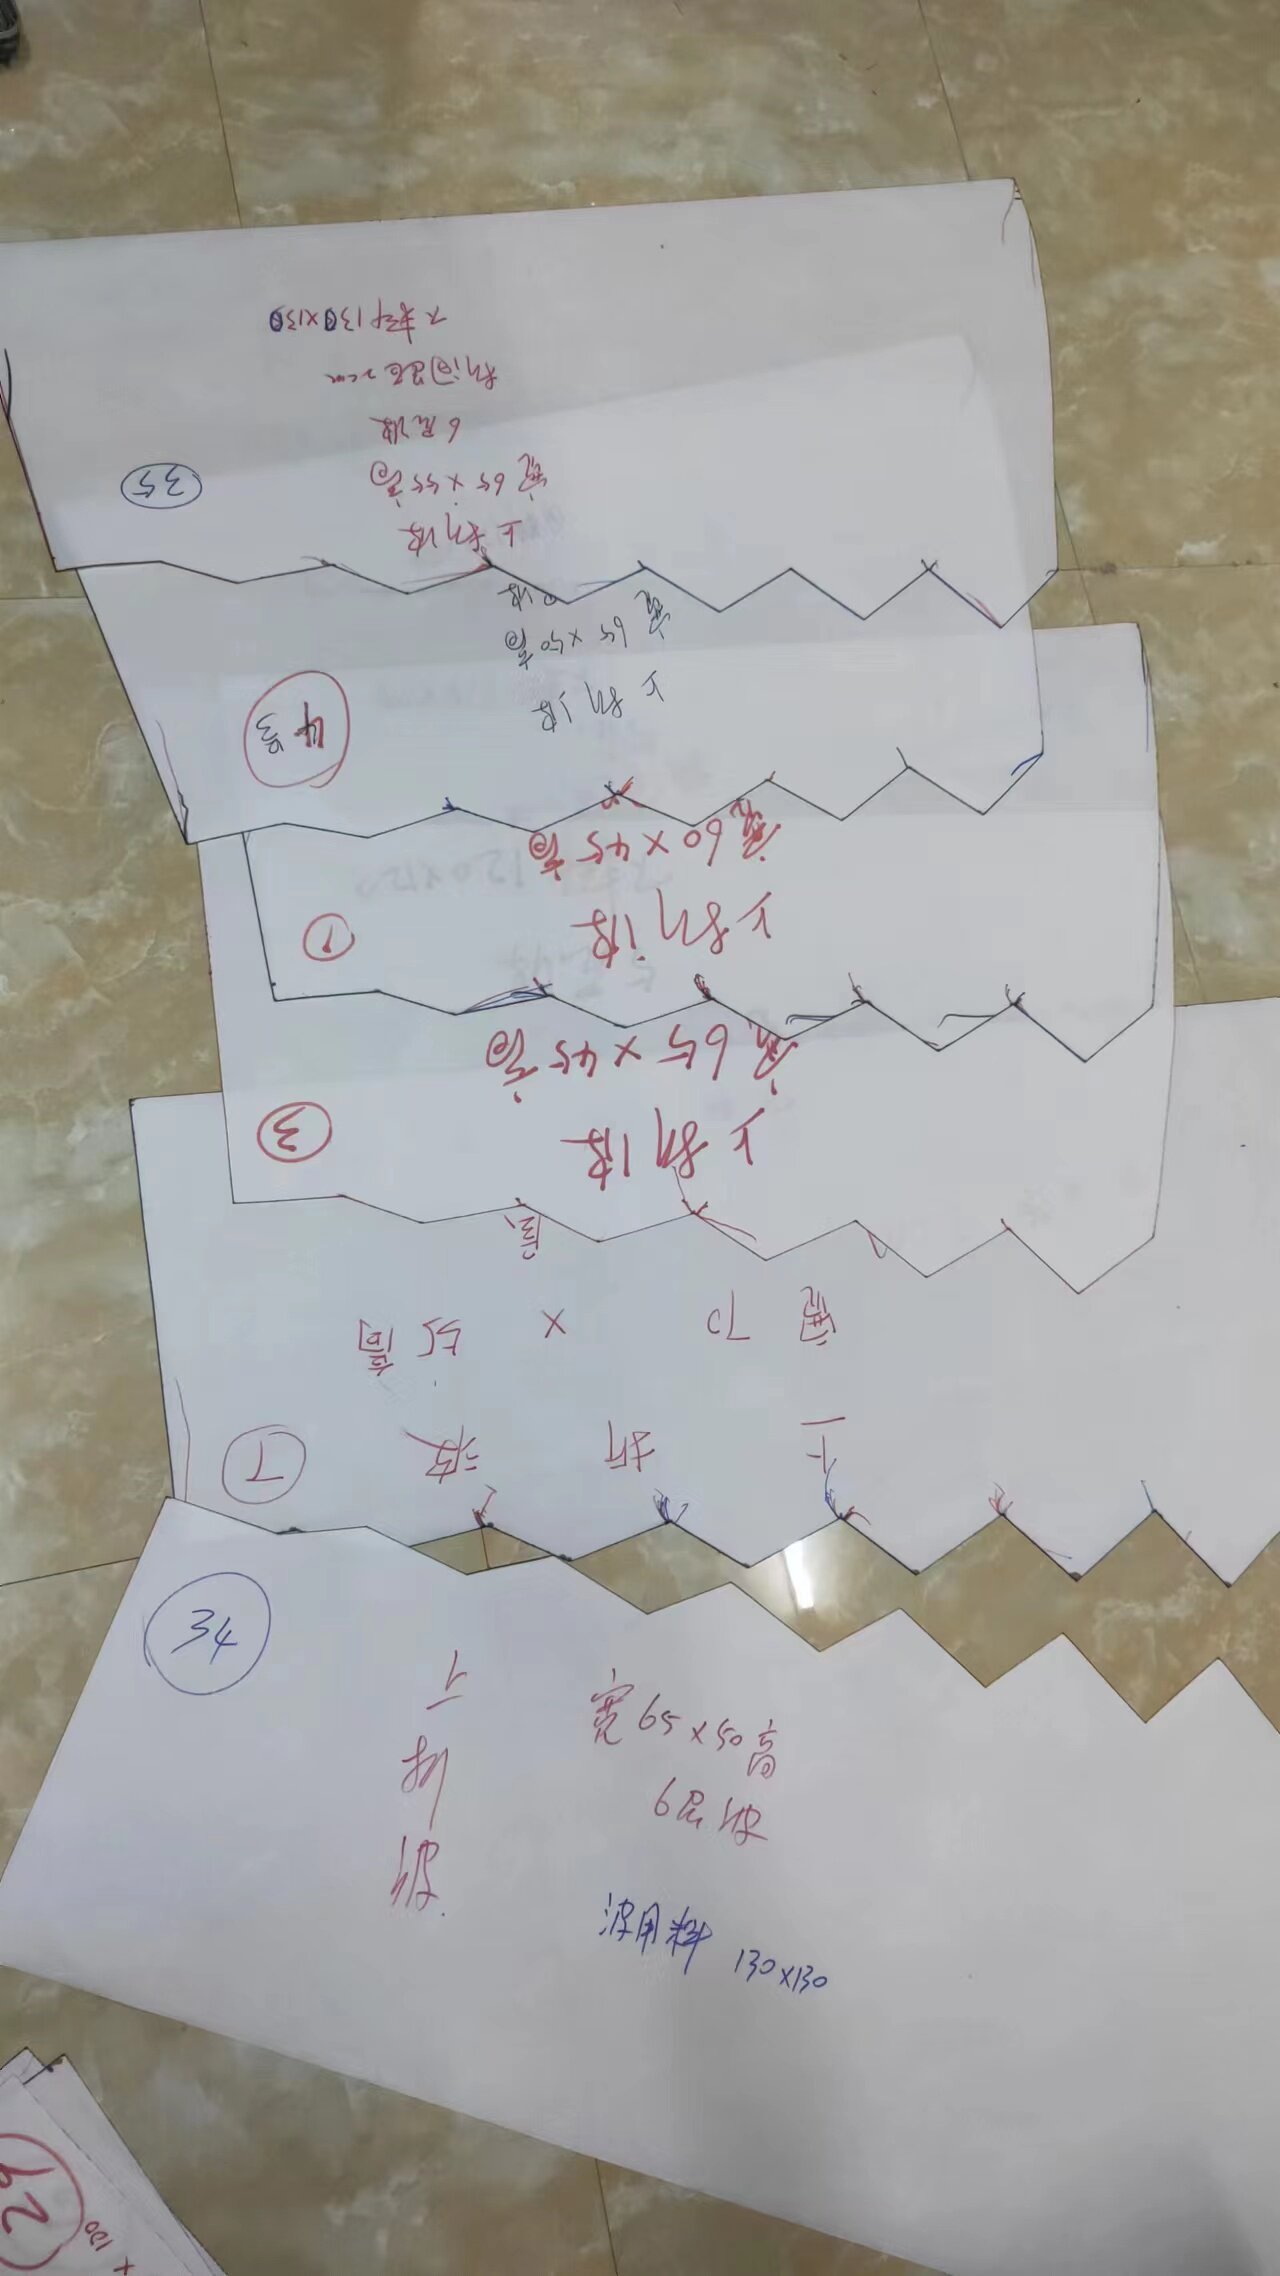 35
下折波
宽65×55高
6层波
折间距2cm
大料130×130
4号
下折波
宽65×50高
1
下折波
宽60×45高
3
下折波
宽65×45高
7
下折波
宽70×55高
34
下折波
宽65×50高
6层波
波用料 130×130
29
×100